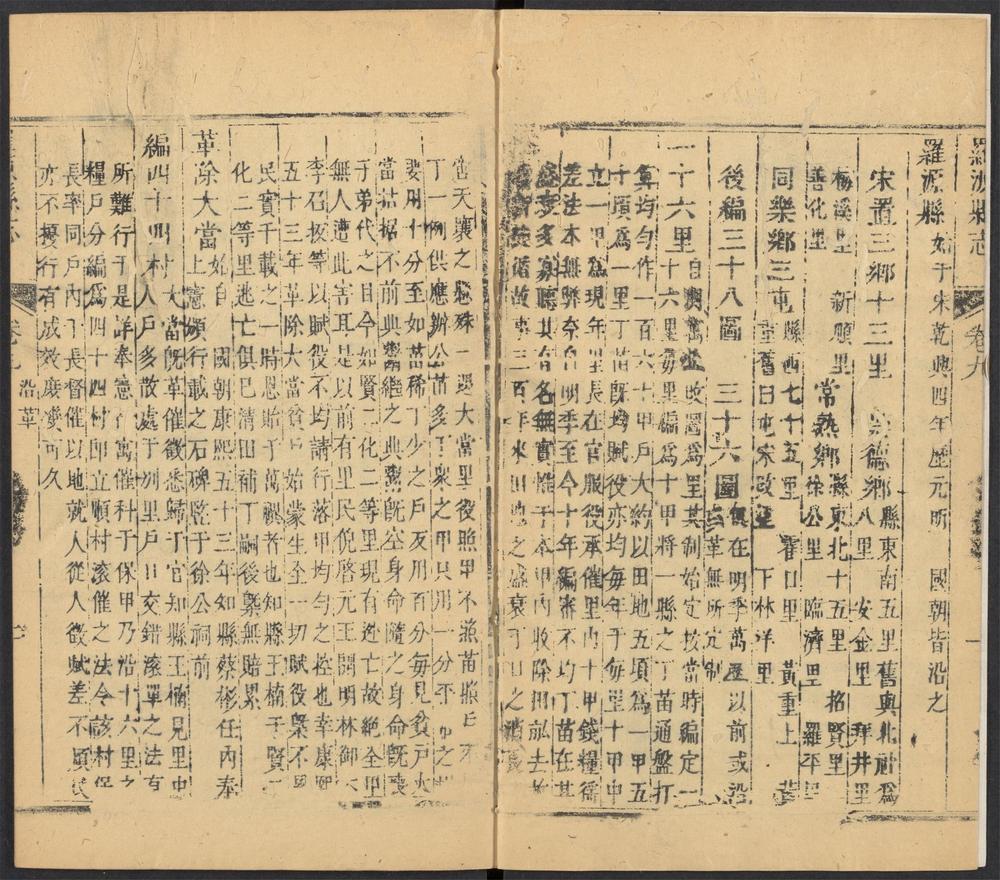 羅源縣志 卷九 一
羅源縣始于宋乾興四年歷元明 國朝皆沿之
宋置三鄉十三里 崇德鄉縣東南五里舊與北鄰為
梅溪里 新順里 常熟鄉縣東北十五里 招賢里
善化里 八里 安金里 拜井里
徐公里 臨濟里 羅平里
同樂鄉三屯縣西七十五里 霍口里 黃重上
重舊曰屯宋改里 下林洋里
後編三十八圖 三十六圖俱在明季萬歷以前或沿
或革無所定制
一十六里自明萬歷改圖為里其制始定按當時編定一
十六里每里編為十甲將一縣之丁苗通盤打
算均勻作一百六十甲戶大約以田地五頃為一甲五
十頃為一里丁苗既均賦役亦均每年于每里十甲中
立一甲為現年里長在官服役承催里內十甲錢糧徭
差法本無弊奈自明季至今十年編審不均丁苗在其
多寡聽其有名無實惟于本甲內收除田畝去
循故事三百年來田地之盛衰丁口之消長
天壤之懸殊一遇大當里役照甲不照苗照
丁一例供應辦公苗多丁衆之甲只用一分
要用十分至如苗稀丁少之戶反用百分每見貧戶
當拮据不前典鬻繼之典鬻既空身命隨之身命既喪
子弟代之目今如賢二化二等里現有逃亡故絕全甲
無人遭此害耳是以前有里民倪啓元王開明林御
李召扳等以賦役不均請行落甲均勻之控也幸康熙
五十三年革除大當貧戶始蒙生全一切賦役槩不
民實千載之一時恩貽于萬禩者也知縣王楠于賢
化二等里逃亡俱已清田補丁嗣後槩無賠累
革除大當始自 國朝康熙五十三年知縣蔡彬任內奉
上憲頒行載之石碑監于徐公祠前
編四十四村大當既革催徵悉歸于官知縣王楠見里中
人戶多散處于別里戶口交錯滾單之法有
所難行于是詳奉憲行寓催科于保甲乃沿十六里之
糧戶分編為四十四村即立順村滚催之法令該村保
長率同戶內丁長督催以地就人從人徵賦差不煩
亦不擾行有成效慶幾可久
卷九 沿革